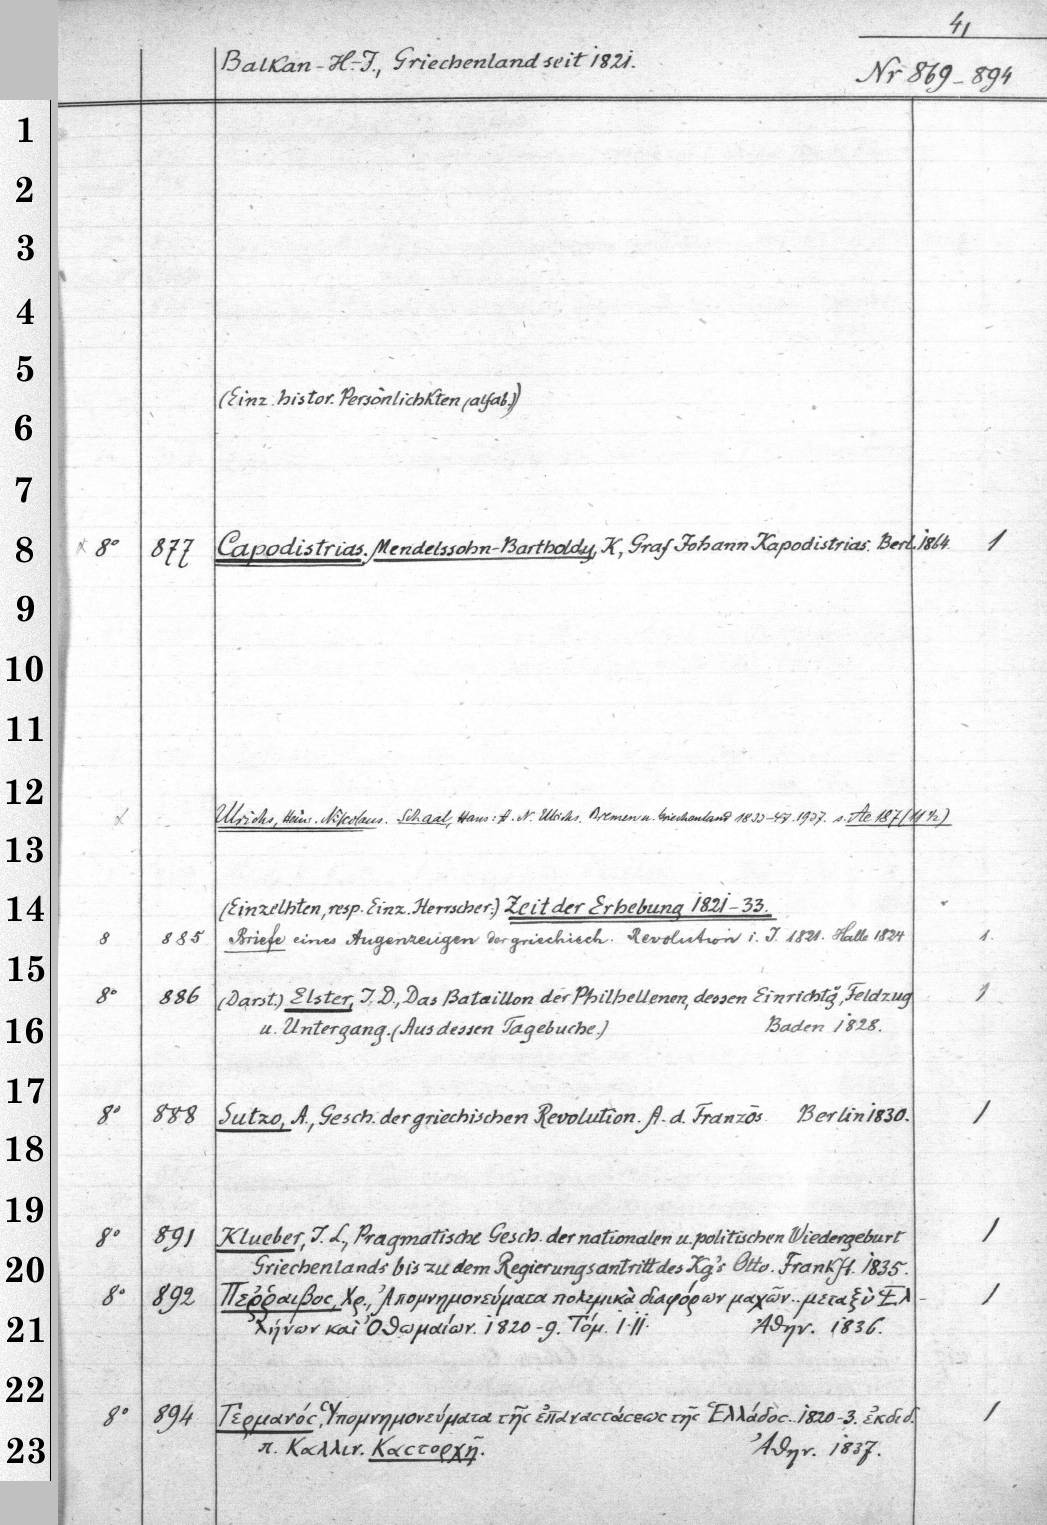 41
Balkan-H.-J., Griechenland seit 1821.
Nr 869-894
1
2
3
4
5
(Einz. histor. Persönlichkten (alfab.))
6
7
8 8° 877 Capodistrias. Mendelssohn-Bartholdy, K, Graf Johann Kapodistrias. Berl. 1864. 1
9
10
11
12
Ulrichs, Heinr. Nikolaus. Schaal, Hans: H. N. Ulrichs. Bremen u. Griechenland 1937. s. Ae 187 (11 1/2)
13
14 (Einzelhten, resp. Einz. Herrscher.) Zeit der Erhebung 1821-33.
8 885 Briefe eines Augenzeugen der griechisch. Revolution i. J. 1821. Halle 1824 1.
15
8° 886 (Darst.) Elster, J. D., Das Bataillon der Philhellenen, dessen Einrichtg, Feldzug 1
16 u. Untergang. (Aus dessen Tagebuche.) Baden 1828.
17
8° 888 Sutzo, A., Gesch. der griechischen Revolution. A. d. Französ. Berlin 1830. 1
18
19
8° 891 Klueber, J. L., Pragmatische Gesch. der nationalen u. politischen Wiedergeburt 1
20 Griechenlands bis zu dem Regierungsantritt des Kg's Otto. Frankft. 1835.
8° 892 Περραιβος, Χρ., Ἀπομνημονεύματα πολεμικὰ διαφόρων μαχῶν.. μεταξὺ Ἑλ- 1
21 λήνων καὶ Ὀθωμαίων. 1820-9. Τόμ. I.II. Ἀθην. 1836.
22
8° 894 Γερμανός, Ὑπομνημονεύματα τῆς ἐπαναστάσεως τῆς Ἑλλάδος.. 1820-3. ἐκδιδ. 1
23 π. Καλλιν. Καστορχῆ. Ἀθην. 1837.